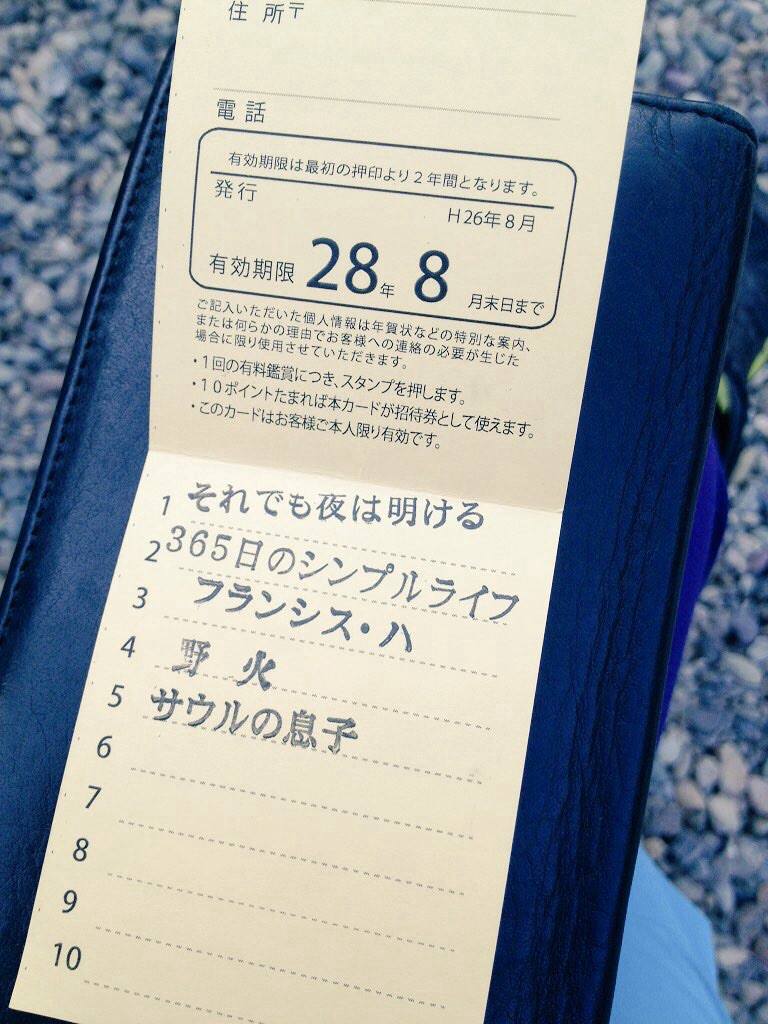 住所〒
電話
有効期限は最初の押印より2年間となります。
発行
H26年8月
有効期限 28年 8 月末日まで
ご記入いただいた個人情報は年賀状などの特別な案内、
または何らかの理由でお客様への連絡の必要が生じた
場合に限り使用させていただきます。
・1回の有料鑑賞につき、スタンプを押します。
・10ポイントたまれば本カードが招待券として使えます。
・このカードはお客様ご本人限り有効です。
1 それでも夜は明ける
2 365日のシンプルライフ
3 フランシス・ハ
4 野火
5 サウルの息子
6
7
8
9
10